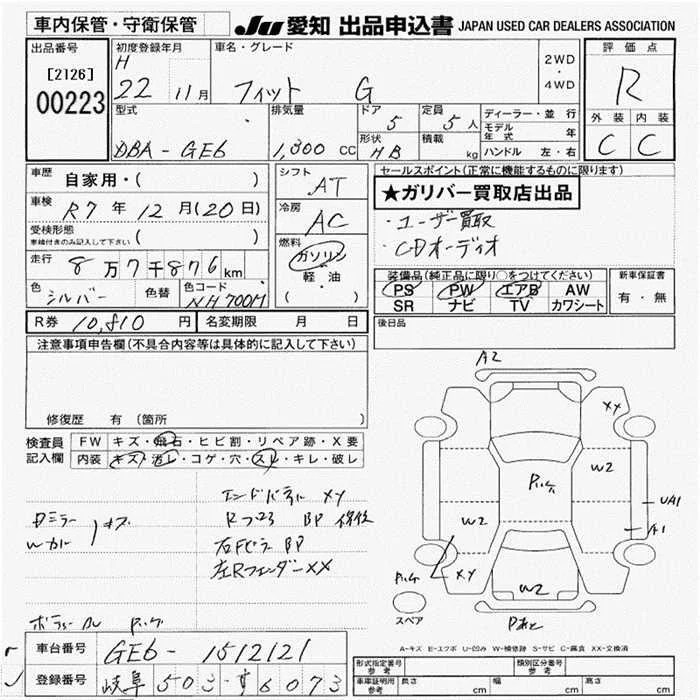 車内保管・守衛保管
JU 愛知 出品申込書 JAPAN USED CAR DEALERS ASSOCIATION
出品番号
[2126]
00223
初度登録年月
H
22 11月
車名・グレード
フィット G
2WD
・
4WD
評価点
R
外装 内装
C C
型式
DBA-GE6
排気量
1,300 cc
ドア 5
定員 5 人
形状 HB
積載 kg
ディーラー・並行
モデル年式 年
ハンドル 左・右
車歴 自家用・( )
車検 R7 年 12 月(20 日)
受検形態
車検付きのみ記入して下さい ( )
走行 8万7千876km
色 シルバー 色替 色コード NH700M
シフト AT
冷房 AC
燃料
ガソリン
軽・油
( )
セールスポイント(正常に機能するものに限ります)
★ガリバー買取店出品
・ユーザー買取
・CDオーディオ
装備品(純正品に限り○をつけてください)
PS PW エアB AW
SR ナビ TV カワシート
新車保証書
有・無
後日品
R券 10,810 円 名変期限 月 日
注意事項申告欄(不具合内容等は具体的に記入して下さい)
修復歴 有 (箇所 )
検査員
記入欄
FW キズ・飛石・ヒビ割・リペア跡・X要
内装 キズ・汚レ・コゲ・穴・スレ・キレ・破レ
エンドパネル XY
Rフロア BP 修復
右Fピラー BP
左RフェンダーXX
Dミラー
Wカバー キズ
A2
XY
W2
W2
UA1
A1
XY
W2
スペア
A-キズ E-エクボ U-凹み W-補修跡 S-サビ C-腐食 XX-交換済
車台番号 GE6-1512121
登録番号 岐阜 503 す 6073
形式指定番号
参考
類別区分番号
参考
車庫証明用
参考
長さ cm 幅 cm 高さ cm